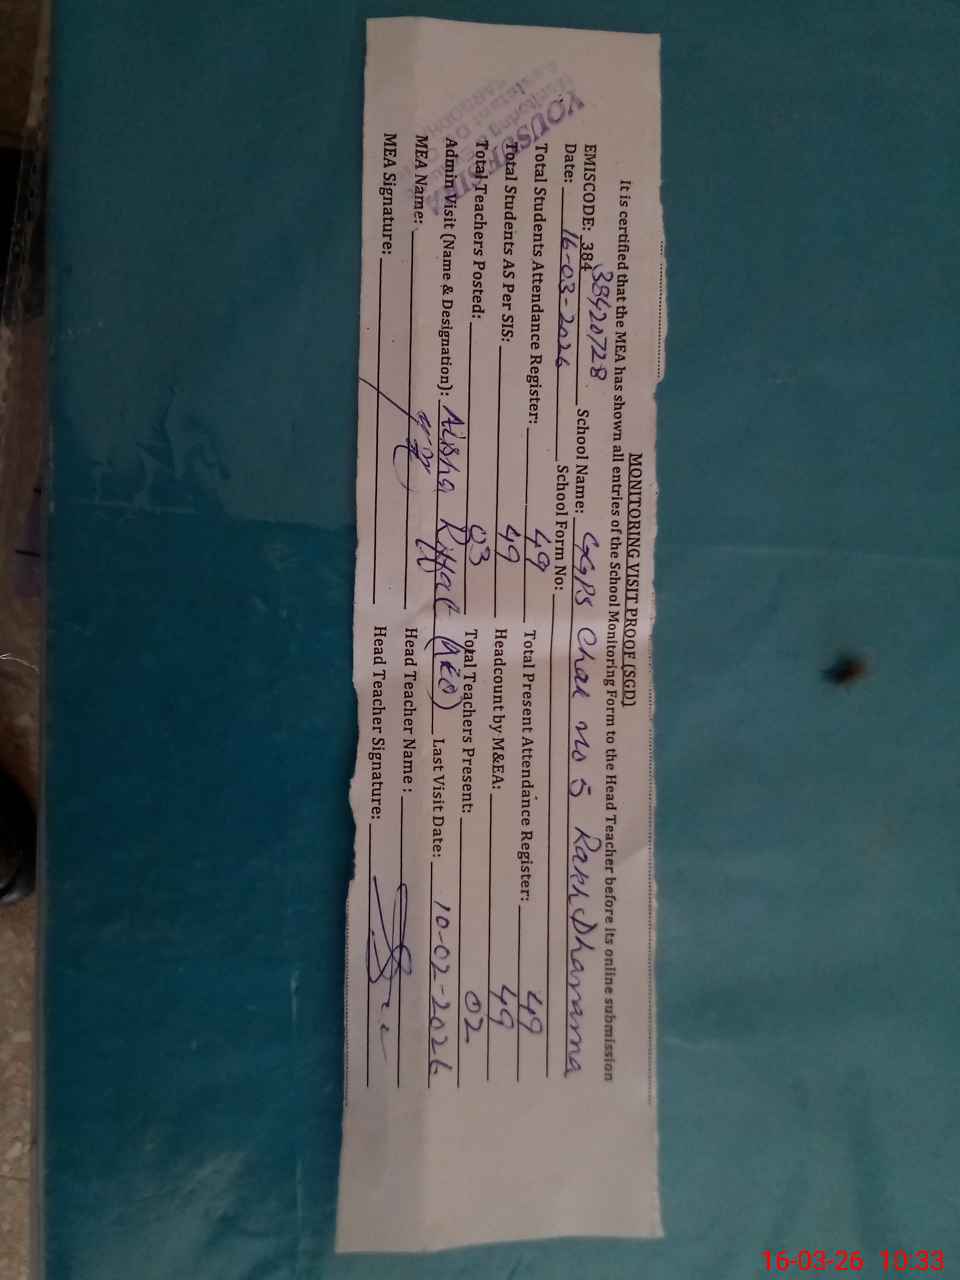 MONITORING VISIT PROOF (SGD)
It is certified that the MEA has shown all entries of the School Monitoring Form to the Head Teacher before its online submission
EMISCODE: 384 38420728 School Name: GGPS Chak no 5 Rakh Dharama
Date: 16-03-2026 School Form No:
Total Students Attendance Register: 49 Total Present Attendance Register: 49
Total Students AS Per SIS: 49 Headcount by M&EA: 49
Total Teachers Posted: 03 Total Teachers Present: 02
Admin Visit (Name & Designation): Aisha Riffat (AEO) Last Visit Date: 10-02-2026
MEA Name: Head Teacher Name :
MEA Signature: Head Teacher Signature:
16-03-26 10:33